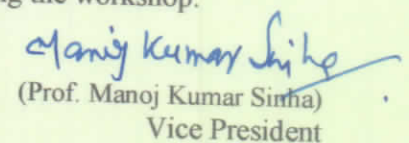 ing the workshop.
Manoj Kumar Sinha
(Prof. Manoj Kumar Sinha)
Vice President